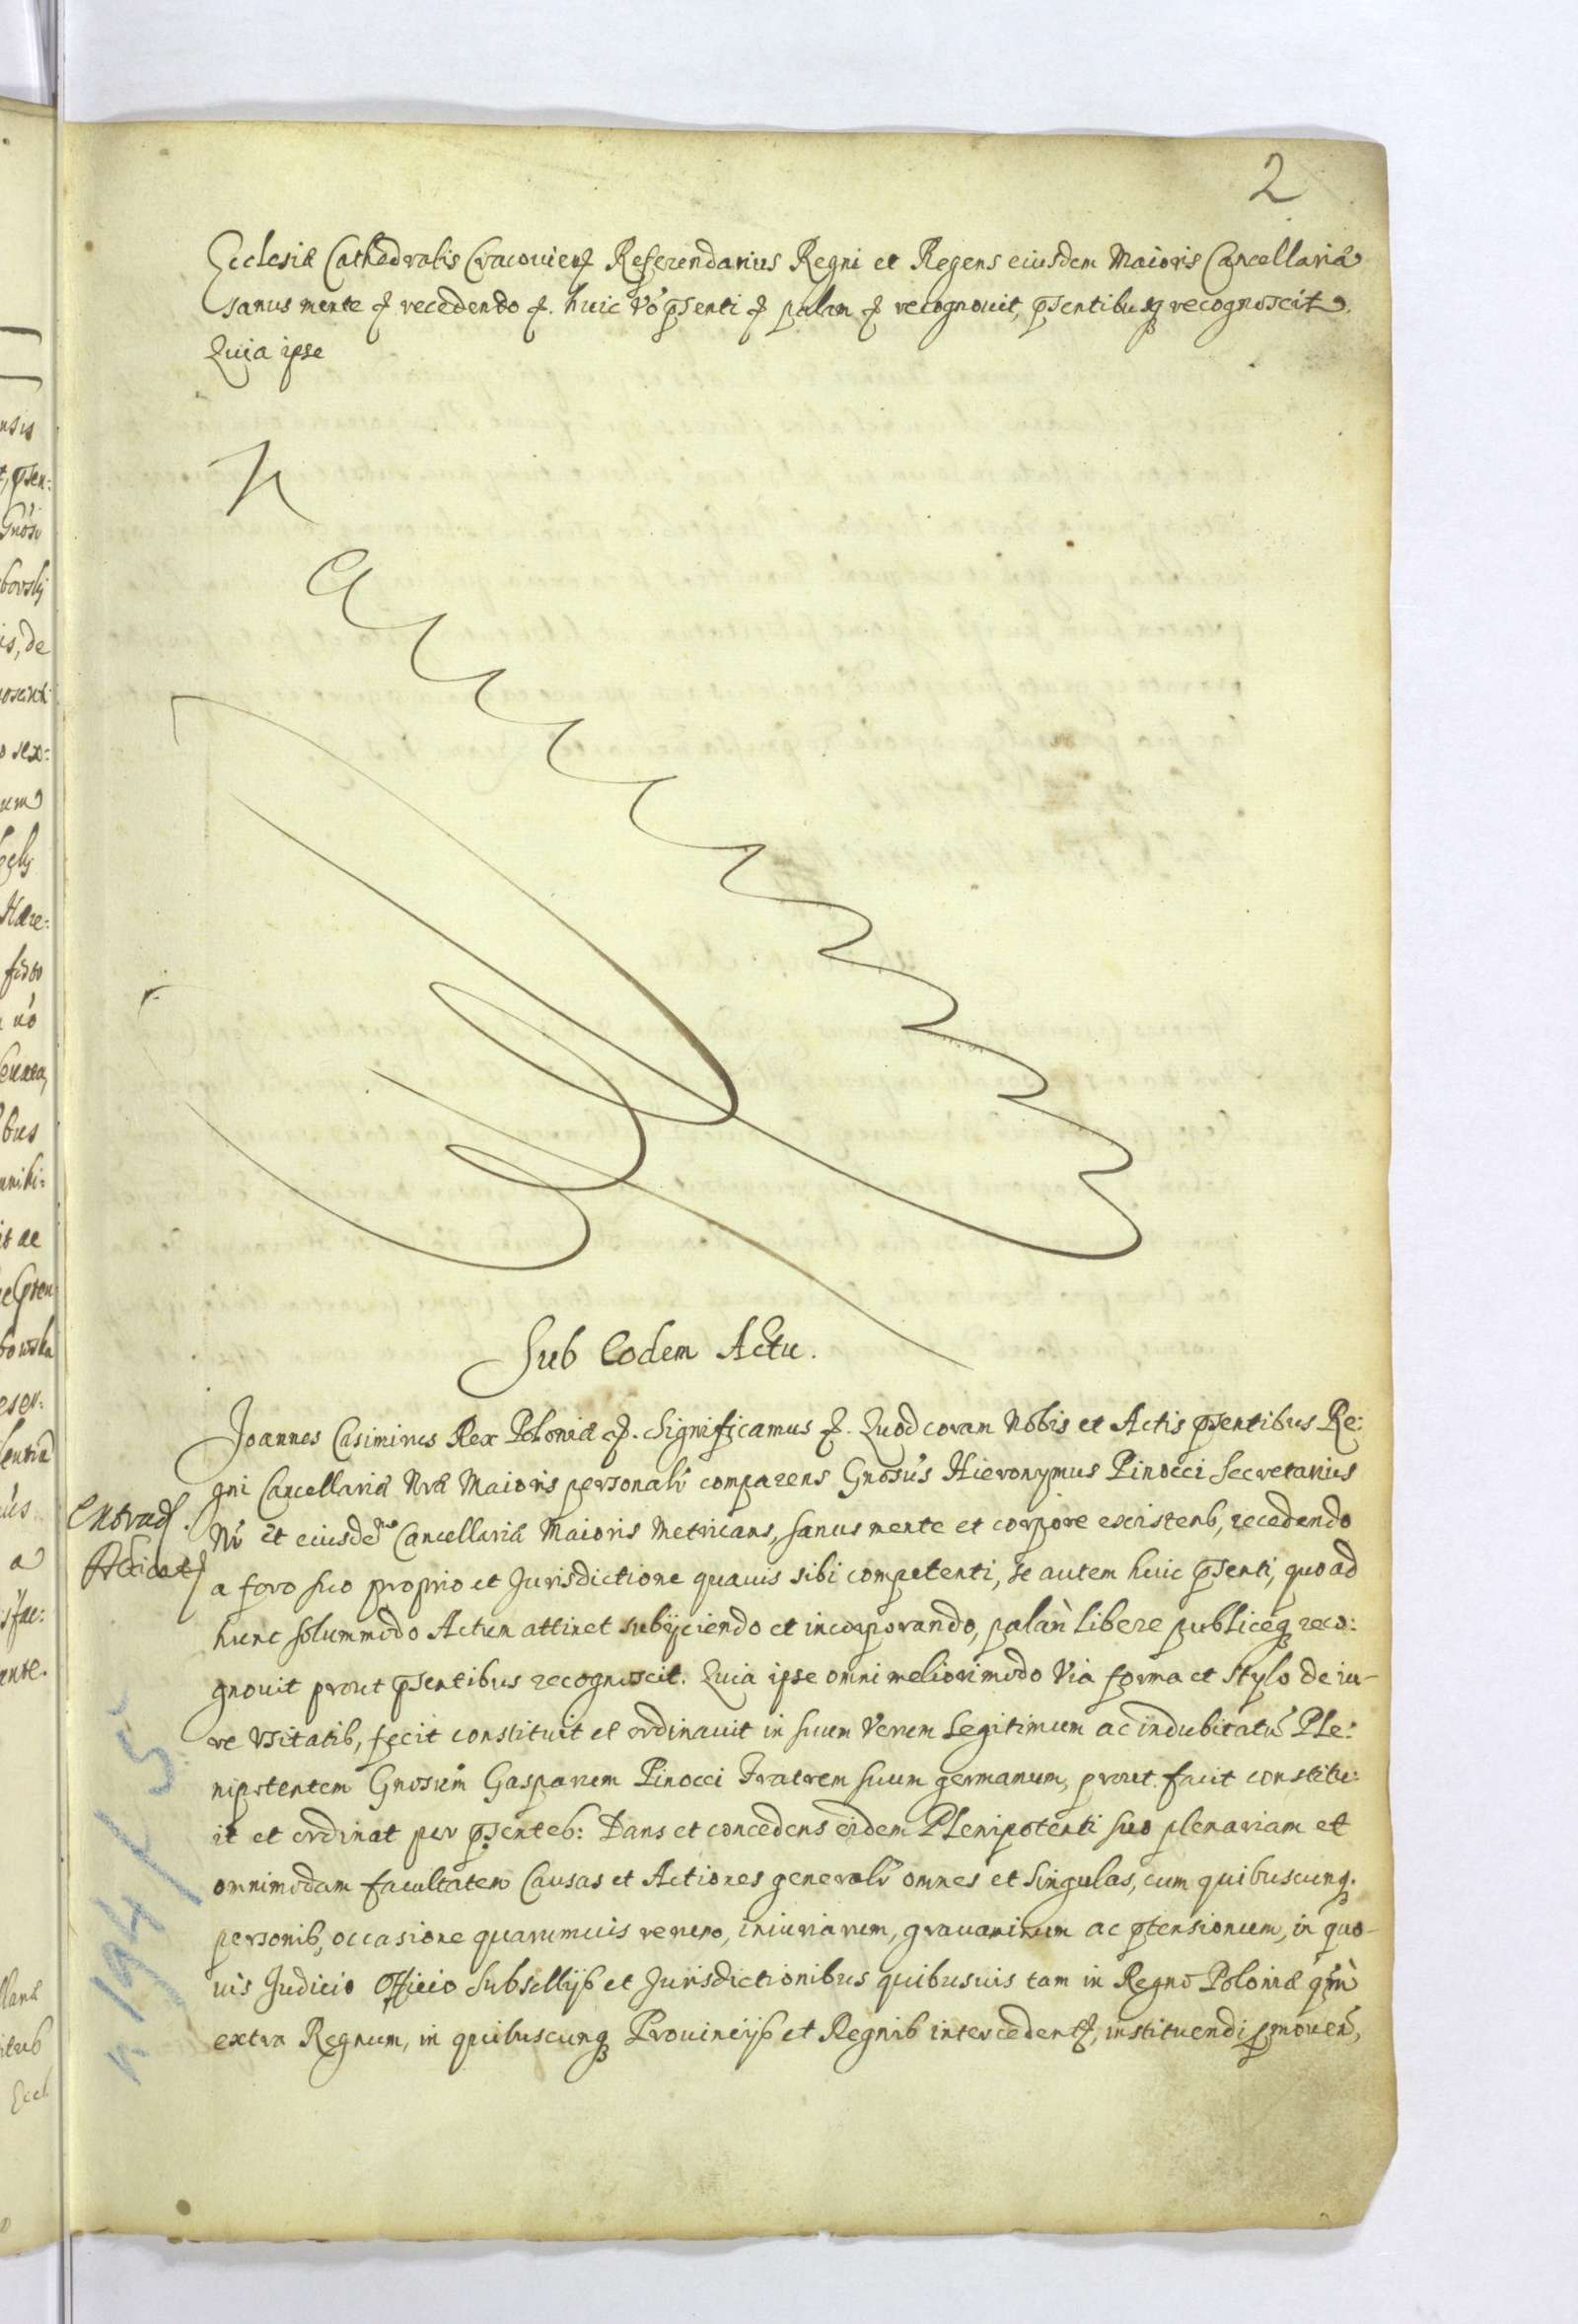 2
Ecclesiæ Cathedralis Cracovien Referendarius Regni et Regens eiusdem Maioris Cancellariæ
sanus mente & recedendo &. huic vo pñsenti & palam & recognouit, pñsentibusq recognoscit.
Quia ipse
Sub Eodem Actu.
Joannes Casimirus Rex Poloniæ &. Significamus &. Quod coram Nobis et Actis pñsentibus Re:
gni Cancellariæ Nræ Maioris personalr comparens Gnosus Hieronymus Pinocci Secretarius
Nr et eiusdem Cancellariæ Maioris Metricans, sanus mente et corpore existens, recedendo
a foro suo proprio et Jurisdictione quauis sibi competenti, se autem huic pñsenti, quo ad
hunc solummodo Actum attinet subijciendo et incorporando, palam libere publiceq reco:
gnouit prout pñsentibus recognoscit. Quia ipse omni meliori modo via forma et stylo de iu-
re vsitatis, fecit constituit et ordinauit in suum verum legitimum ac indubitatu Ple:
nipotentem Gnosum Gasparem Pinocci Fratrem suum germanum, prout facit constitu:
it et ordinat per pñsentes: Dans et concedens eidem Plenipotenti suo plenariam et
omnimodam facultatem Causas et Actiones generalr omnes et singulas, cum quibuscunq.
personis, occasione quarumuis rerum, iniuriarum, grauaminum ac ptensionum, in quo-
uis Judicio Officio Subsellijs et Jurisdictionibus quibusuis tam in Regno Poloniæ qm
extra Regnum, in quibuscunq Prouincijs et Regnis intercedent, instituendi pmouen,
n 194/5